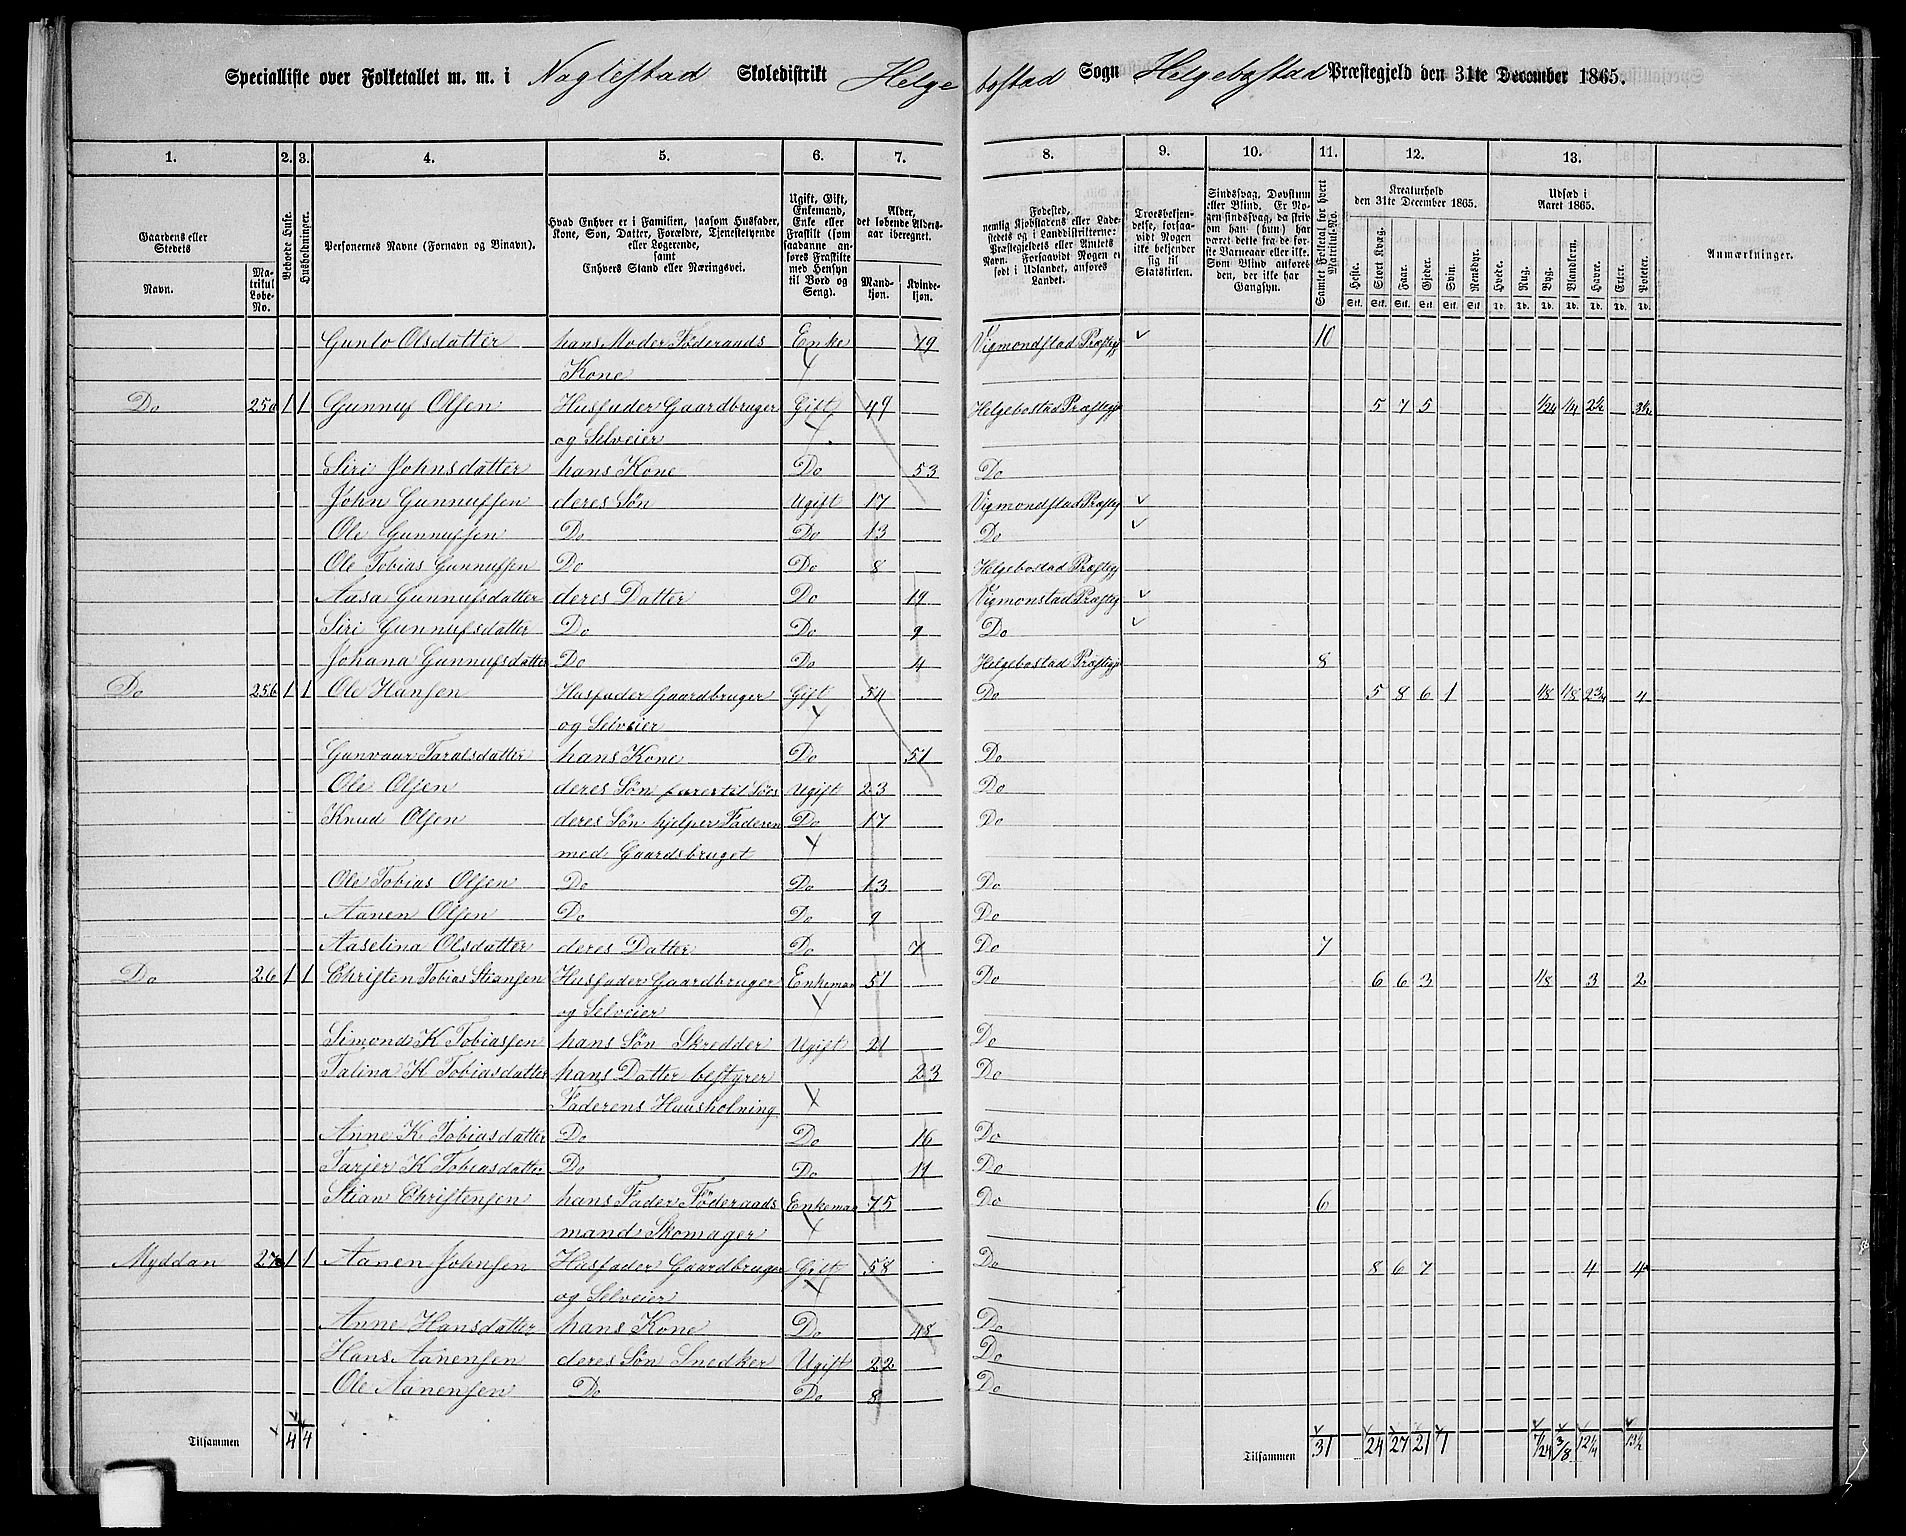 Specialliste over Folketallet m. m. i Naglestad Skoledistrikt Helgebostad Sogn Helgebostad Præstegjeld den 31te December 1865.
1. 2. 3. 4. 5. 6. 7. 8. 9. 10. 11. 12. 13.
Gaardens eller Stedets
Navn. Matrikul Løbe-No.
Beboede Huse.
Husholdninger.
Personernes Navne (Fornavn og Binavn).
Hvad Enhver er i Familien, saasom Husfader, Kone, Søn, Datter, Forældre, Tjenestetyende eller Logerende, samt Enhvers Stand eller Næringsvei.
Ugift, Gift, Enkemand, Enke eller Fraskilt (som saadanne ansøres Fraskilte med Hensyn til Bord og Seng).
Alder, det løbende Aldersaar beregnet.
Mandkjøn. Kvindekjøn.
Fødested, nemlig Kjøbstadens eller Ladestedets og i Landdistrikterne: Præstegjeldets eller Amtets Navn. Forsaavidt Nogen er født i Udlandet, anføres Landet.
Troesbekjendelse, forsaavidt Nogen ikke bekjender sig til Statskirken.
Sindssvag, Døvstum eller Blind. Er Nogen sindssvag, da skrives om han (hun) har været dette fra de første Barneaar eller ikke. Som Blind anføres den, der ikke har Gangsyn.
Samlet Folketal for hvert Matrikul-No.
Kreaturhold den 31te December 1865.
Heste. Stort Kvæg. Faar. Gjeder. Svin. Rensdyr.
Udsæd i Aaret 1865.
Hvede. Rug. Byg. Blandkorn. Havre. Erter. Poteter.
Anmærkninger.
Gunlo Olsdatter hans Moder Föderaads Enke 79 Vigmondstad Præstegj 10
Kone
Do 25a 1 1 Gunnuf Olsen Husfader Gaardbruger Gift 49 Helgebostad Præstegj 5 7 5 1/24 1/4 2½ 3½
og Selveier
Siri Johnsdatter hans Kone Do 53 Do
John Gunnufsen deres Søn Ugift 17 Vigmondstad Præsteg
Ole Gunnufsen Do Do 13 Do
Ole Tobias Gunnufsen Do Do 8 Helgebostad Præstegj
Aasa Gunnufsdatter deres Datter Do 19 Vigmonstad Præsteg
Siri Gunnufsdatter Do Do 9 Do
Johana Gunnufsdatter Do Do 4 Helgebostad Præstegj 8
Do 25b 1 1 Ole Hansen Husfader Gaardbruger Gift 54 Do 5 8 6 1 1/8 1/8 2¾ 4
og Selveier
Gunvaar Taralsdatter hans Kone Do 51 Do
Ole Olsen deres Søn farer til Søes Ugift 23 Do
Knud Olsen deres Søn hjelper Faderen Do 17 Do
med Gaardsbruget
Ole Tobias Olsen Do Do 13 Do
Aanen Olsen Do Do 9 Do
Aaselina Olsdatter deres Datter Do 7 Do 7
Do 26 1 1 Christen Tobias Stiansen Husfader Gaardbruger Enkeman 51 Do 6 6 3 1/8 3 2
og Selveier
Simond K Tobiassen hans Søn Skredder Ugift 21 Do
Talina K Tobiasdatter hans Datter bestyrer 23 Do
Faderens Huusholning
Anne K Tobiasdatter Do Do 16 Do
Tarjer K Tobiasdatter Do Do 11 Do
Stian Christensen hans Fader Föderaads Enkeman 75 Do 6
mand Skomager
Myddan 27a 1 1 Aanen Johnsen Husfader Gaardbruger Gift 58 Do 8 6 7 4 4
og Selveier
Anne Hansdatter hans Kone Do 48 Do
Hans Aanensen deres Søn Snedker Ugift 22 Do
Ole Aanensen Do Do 8 Do
Tilsammen 4 4 Tilsammen 31 24 27 21 1 7/24 3/8 12¼ 13½